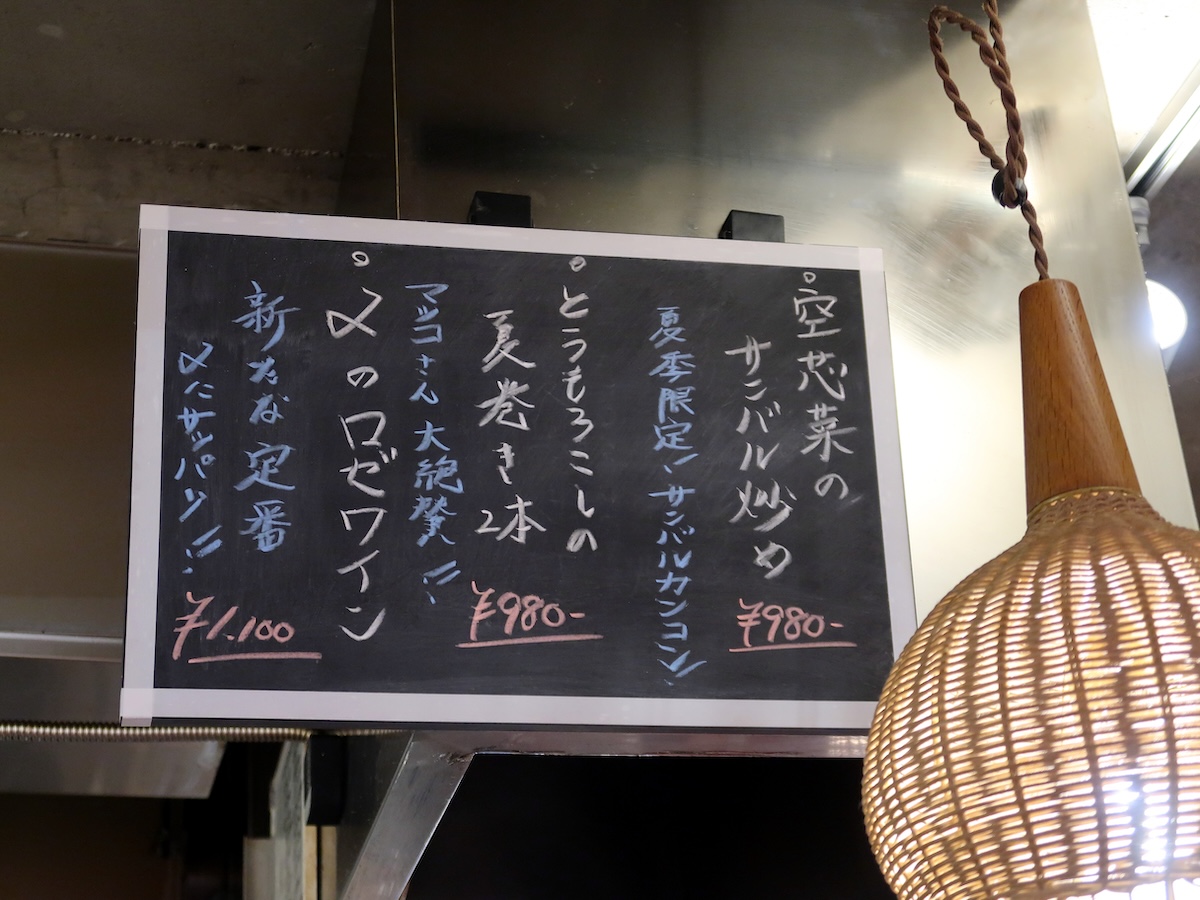 空芯菜の
サンバル炒め
¥980-
夏季限定!!サンバルカンコン
とうもろこしの
夏巻き2本
¥980-
マツコさん大絶賛!!
〆のロゼワイン
新たな定番
〆にサッパリ!!
¥1.100